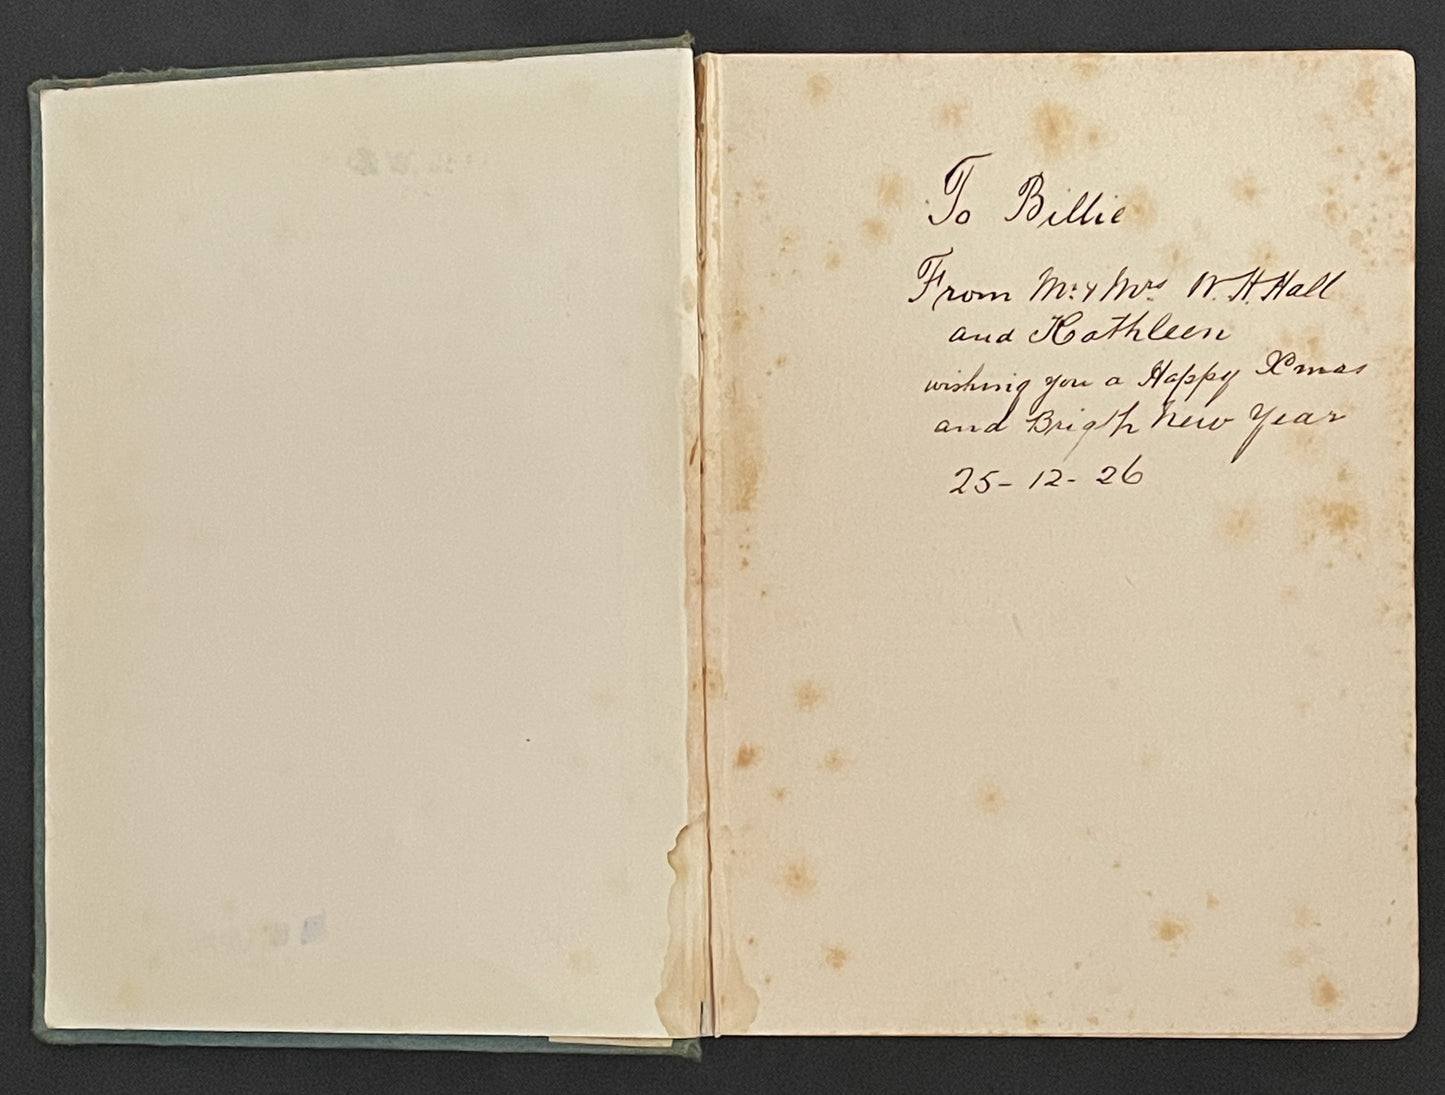 To Billie
From Mr. & Mrs. W. H. Hall
and Kathleen
wishing you a Happy Xmas
and Brigth New Year
25-12-26